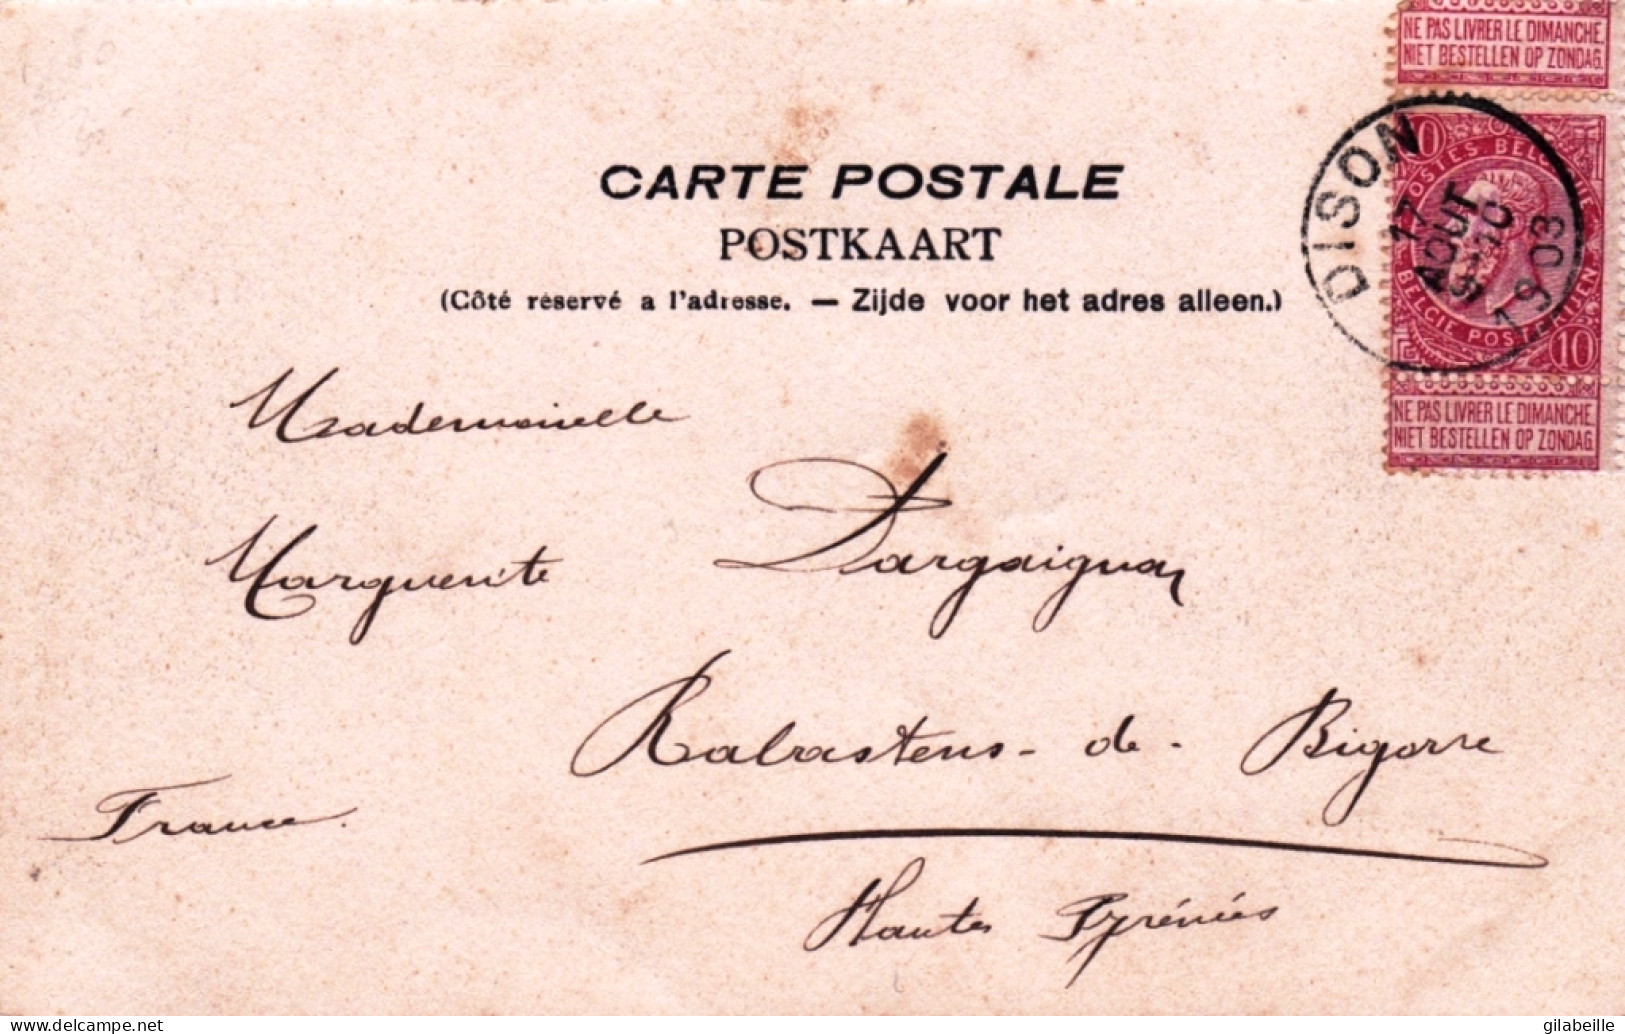 NE PAS LIVRER LE DIMANCHE.
NIET BESTELLEN OP ZONDAG.
CARTE POSTALE
POSTKAART
(Côté réservé a l'adresse. — Zijde voor het adres alleen.)
10
POSTES BELGIQUE
BELGIE POSTERIJEN
10
DISON
17
AOUT
1903
NE PAS LIVRER LE DIMANCHE.
NIET BESTELLEN OP ZONDAG.
Mademoiselle
Marguerite Dargaignon
Rabastens-de-Bigorre
France.
Hautes Pyrénées
delcampe.net
gilabeille